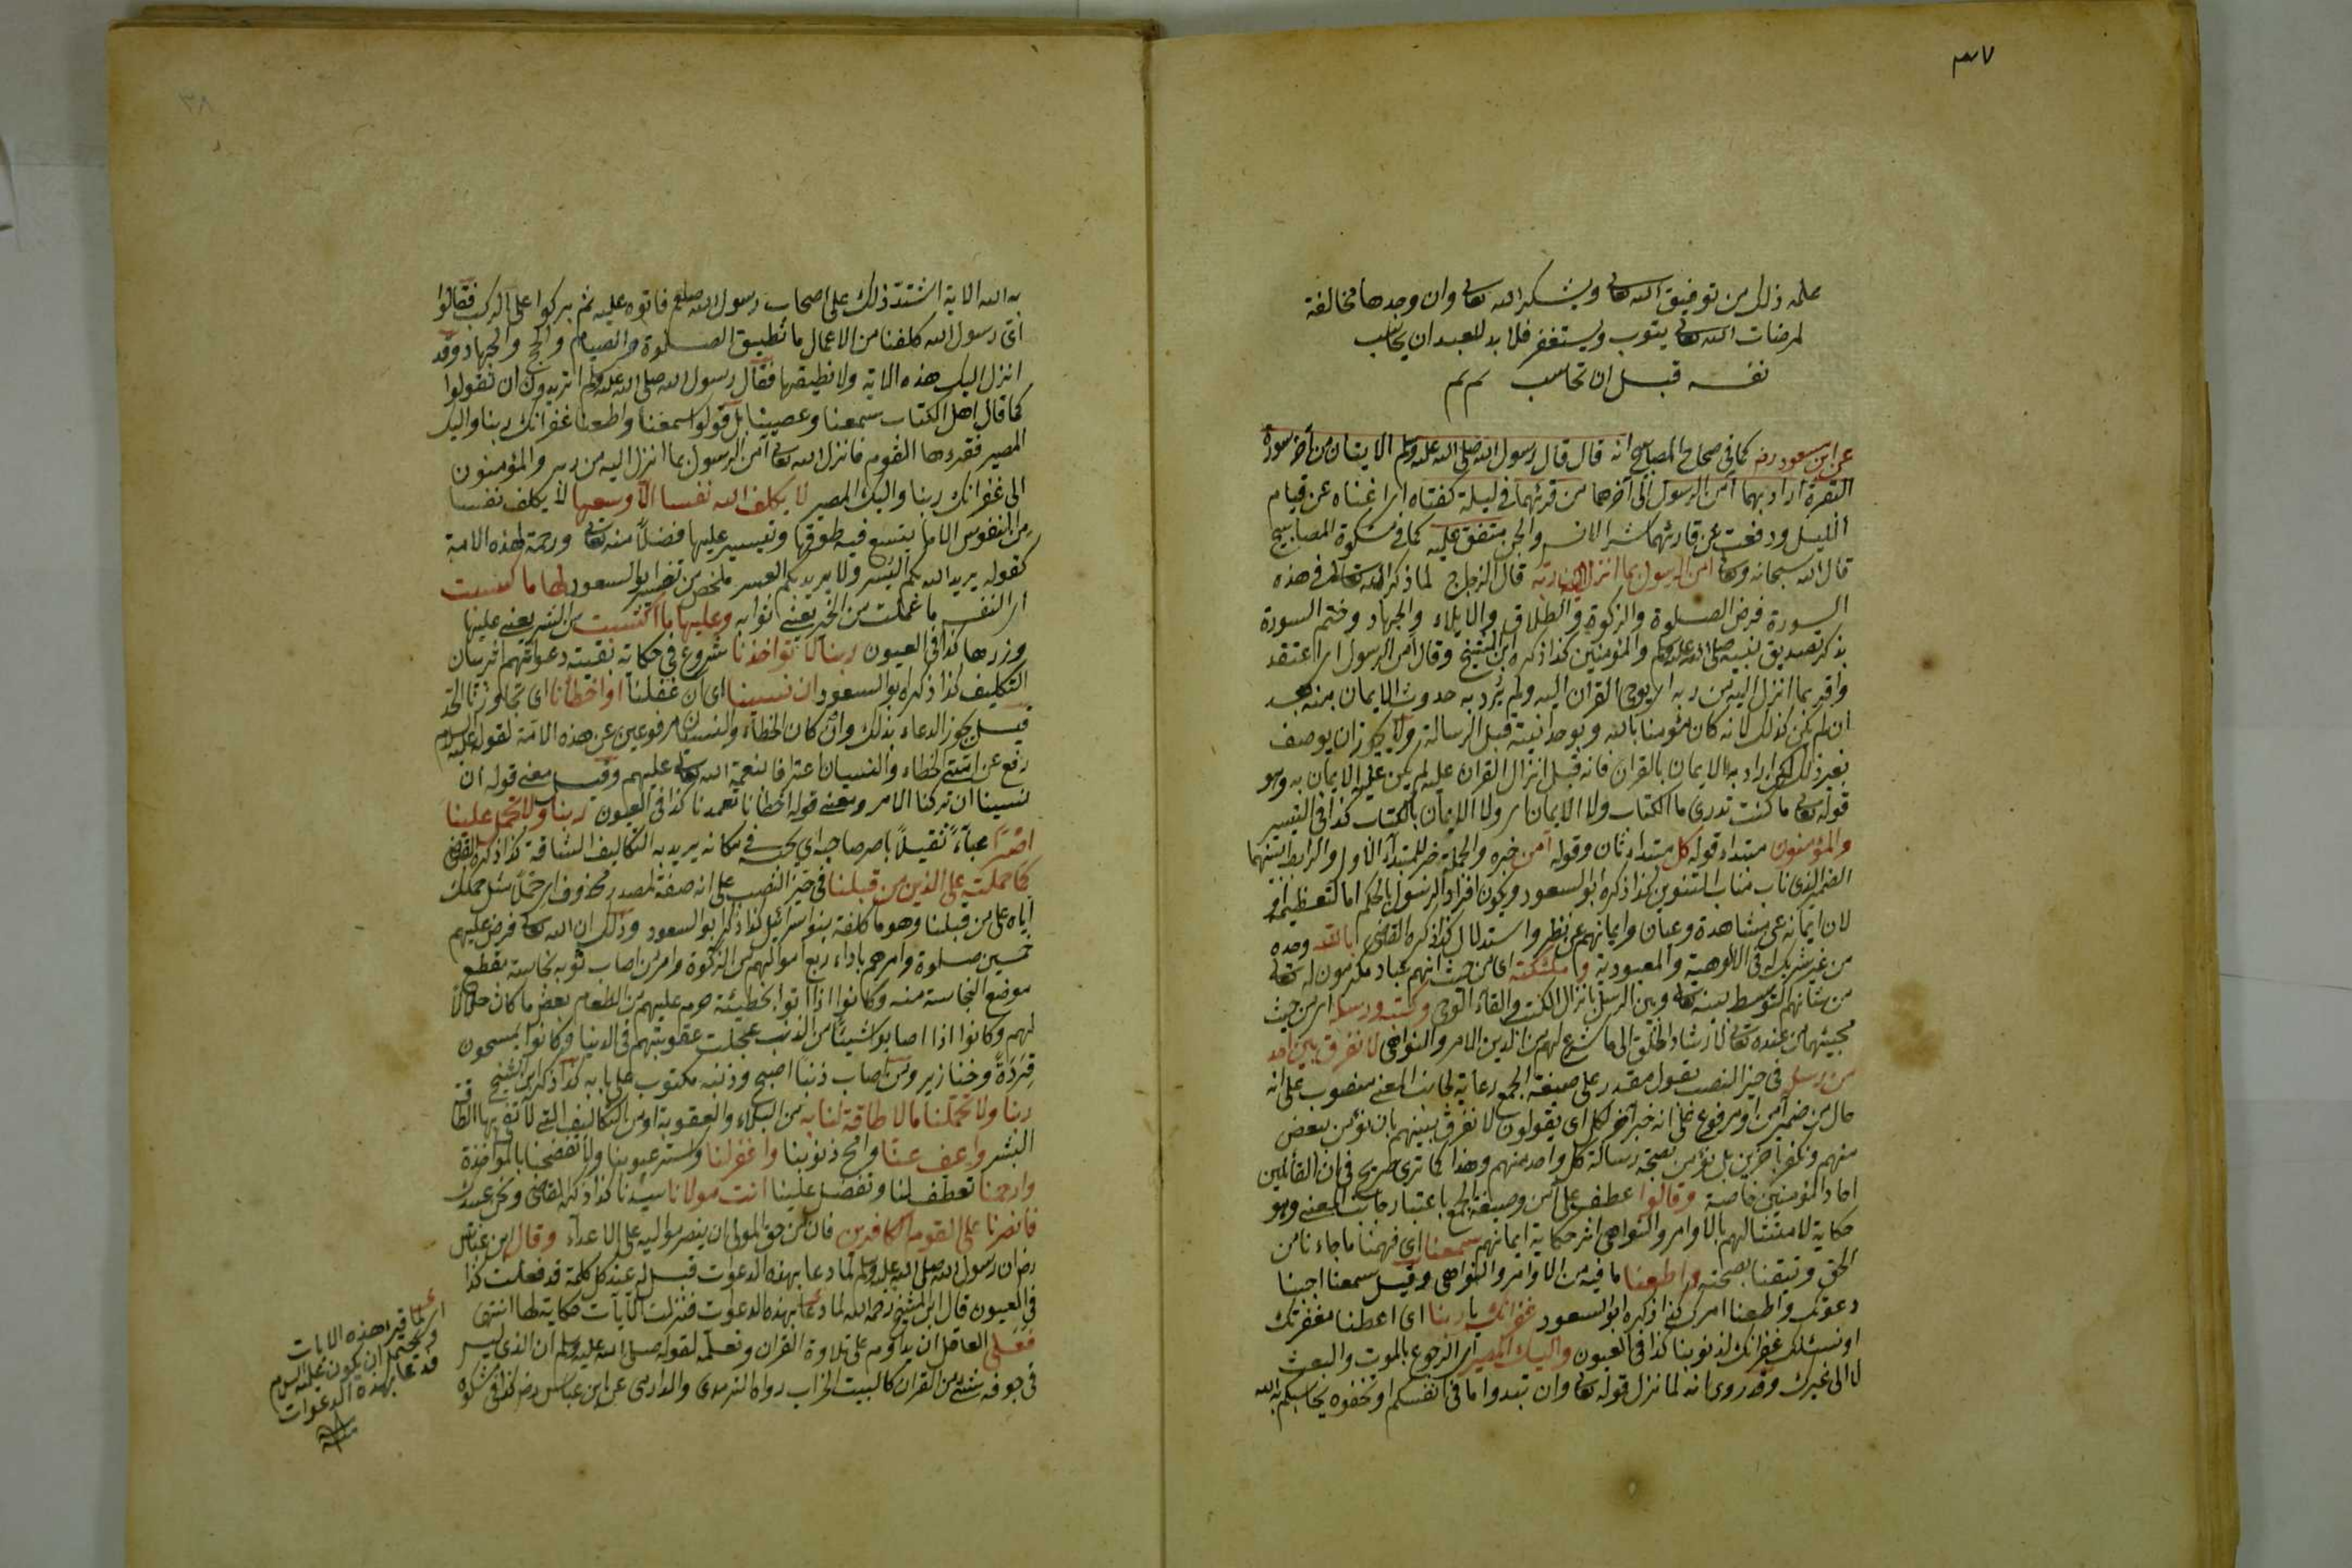 ٣٧
علمه ذلك من توفيق الله تعالى ويشكر الله تعالى وان وجدها مخالفة
لمرضات الله تعالى يتوب ويستغفر فلا بد للعبد ان يحاسب
نفسه قبل ان تحاسب تم تم
عن ابن مسعود رضه كما في صحاح المصابيح انه قال قال رسول الله صلى الله عليه وسلم الايتان من آخر سورة
البقرة اراد بهما آمن الرسول الى آخرهما من قرئهما في ليلة كفتاه اى اغناه عن قيام
الليل ودفعت عن قارئهما شر الانس والجن متفق عليه كما في مشكوة المصابيح
قال الله سبحانه وتعالى آمن الرسول بما انزل اليه من ربه قال الزجاج لما ذكر الله تعالى في هذه
السورة فرض الصلوة والزكوة والطلاق والايلاء والجهاد وختم السورة
بذكر تصديق نبيه صلى الله عليه وسلم والمؤمنين كذا ذكره ابن الشيخ وقال آمن الرسول اى اعتقد
واقر بما انزل اليه من ربه اى بوحى القرآن اليه ولم يرد به حدوث الايمان منه بعد
ان لم يكن كذلك لانه كان مؤمنا بالله وبوحدانيته قبل الرسالة ولا يجوز ان يوصف
بغير ذلك لكن اراد به الايمان بالقرآن فانه قبل انزال القرآن عليه لم يكن عليه الايمان به وهو
قوله تعالى ما كنت تدرى ما الكتاب ولا الايمان اى ولا الايمان بالكتاب كذا في التيسير
والمؤمنون مبتداء قوله كل مبتداء ثان وقوله آمن خبره والجملة خبر للمبتدأ الاول والرابط بينهما
الضمير الذى ناب مناب التنوين كذا ذكره ابو السعود ويكون افراد الرسول بالحكم اما لتعظيمه او
لان ايمانه عن مشاهدة وعيان وايمانهم عن نظر واستدلال كذا ذكره القاضى بالله وحده
من غير شريك له في الالوهية والمعبودية وملئكته اى من حيث انهم عباد مكرمون له تعالى
من شأنهم التوسط بينه تعالى وبين الرسل بانزال الكتب والقاء الوحى وكتبه ورسله اى من حيث
مجيئهما من عنده تعالى لارشاد الخلق الى ما شرع لهم من الدين بالاوامر والنواهى لا نفرق بين احد
من رسله في حيز النصب بقول مقدر على صيغة الجمع رعاية لجانب المعنى منصوب على انه
حال من ضمير آمن او مرفوع على انه خبر آخر لكل اى يقولون لا نفرق بينهم بان نؤمن ببعض
منهم ونكفر بآخرين بل نؤمن بصحة رسالة كل واحد منهم وهذا كما ترى صريح في ان القائلين
احاد المؤمنين خاصة وقالوا عطف على آمن وصيغة الجمع باعتبار جانب المعنى وهو
حكاية لامتثالهم بالاوامر والنواهى اثر حكاية ايمانهم سمعنا اى فهمنا ما جاءنا من
الحق وتيقنا بصحته واطعنا ما فيه من الاوامر والنواهى وقيل سمعنا اجبنا
دعوتك واطعنا امرك كذا ذكره ابو السعود غفرانك يا ربنا اى اعطنا مغفرتك
او نسئلك غفرانك لذنوبنا كذا في العيون واليك المصير اى الرجوع بالموت والبعث
لا الى غيرك وقد روى انه لما نزل قوله تعالى وان تبدوا ما في انفسكم او تخفوه يحاسبكم به الله
٣٨
به الله الاية اشتد ذلك على اصحاب رسول الله صلعم فاتوه عليه ثم بركوا على الركب فقالوا
اى رسول الله كلفنا من الاعمال ما نطيق الصلوة والصيام والحج والجهاد وقد
انزل اليك هذه الاية ولا نطيقها فقال رسول الله صلى الله عليه وسلم اتريدون ان تقولوا
كما قال اهل الكتاب سمعنا وعصينا بل قولوا سمعنا واطعنا غفرانك ربنا واليك
المصير فقرءها القوم فانزل الله تعالى آمن الرسول بما انزل اليه من ربه والمؤمنون
الى غفرانك ربنا واليك المصير لا يكلف الله نفسا الا وسعها لا يكلف نفسا
من النفوس الا ما يتسع فيه طوقها وتيسير عليها فضلا منه تعالى ورحمة لهذه الامة
كقوله يريد الله بكم اليسر ولا يريد بكم العسر ملخص من تفسير ابو السعود لها ما كسبت
اى للنفس ما عملت من الخير يعنى ثوابه وعليها ما اكتسبت من الشر يعنى عليها
وزرها كذا في العيون ربنا لا تؤاخذنا شروع في حكاية بقية دعواتهم اثر بيان
التكليف كذا ذكره ابو السعود ان نسينا اى ان غفلنا او اخطأنا اى تجاوزنا الحد
قيل يجوز الدعاء بذلك وان كان الخطاء والنسيان مرفوعين عن هذه الامة لقوله عليه السلام
رفع عن امتى الخطاء والنسيان اعترافا لنعمة الله تعالى عليهم وقيل معنى قوله ان
نسينا ان تركنا الامر ومعنى قوله اخطأنا تعمدنا كذا في العيون ربنا ولا تحمل علينا
اصرا عبأ ثقيلا ياصر صاحبه اى يحبسه في مكانه يريد به التكاليف الشاقة كذا ذكره القاضى
كما حملته على الذين من قبلنا في حيز النصب على انه صفة لمصدر محذوف اى حملا مثل حملك
اياه على من قبلنا وهو ما كلفه بنو اسرائيل كذا ذكر ابو السعود وذلك ان الله تعالى فرض عليهم
خمسين صلوة وامرهم باداء ربع اموالهم من الزكوة وامر من اصاب ثوبه نجاسة بقطع
موضع النجاسة منه وكانوا اذا اتوا بخطيئة حرم عليهم من الطعام بعض ما كان حلالا
لهم وكانوا اذا اصابوا شيئا من الذنب عجلت عقوبتهم في الدنيا وكانوا يمسحون
قردة وخنازير ومن اصاب ذنبا اصبح وذنبه مكتوب على بابه كذا ذكر ابن الشيخ
ربنا ولا تحملنا ما لا طاقة لنا به من البلاء والعقوبة او من التكاليف التى لا تفى بها الطاقة
البشرية واعف عنا وامح ذنوبنا واغفر لنا واستر عيوبنا ولا تفضحنا بالمؤاخذة
وارحمنا تعطف لنا وتفضل علينا انت مولانا سيدنا كذا ذكره القاضى ونحن عبيدك
فانصرنا على القوم الكافرين فان من حق المولى ان ينصر مواليه على الاعداء وقال ابن عباس
رضه ان رسول الله صلى الله عليه وسلم لما دعا بهذه الدعوات قيل له عند كل كلمة قد فعلت كذا
في العيون قال ابن الشيخ رحمه الله لما دعا بهذه الدعوات فنزلت الآيات حكاية لها انتهى
فعلى العاقل ان يداوم على تلاوة القرآن وتعلمه لقوله صلى الله عليه وسلم ان الذى ليس
في جوفه شئ من القرآن كالبيت الخراب رواه الترمذى والدارمى عن ابن عباس رضه كذا في مشكوة
اى لما قرء هذه الايات
ويحتمل ان يكون عليه السلام
قد دعا بهذه الدعوات
منه